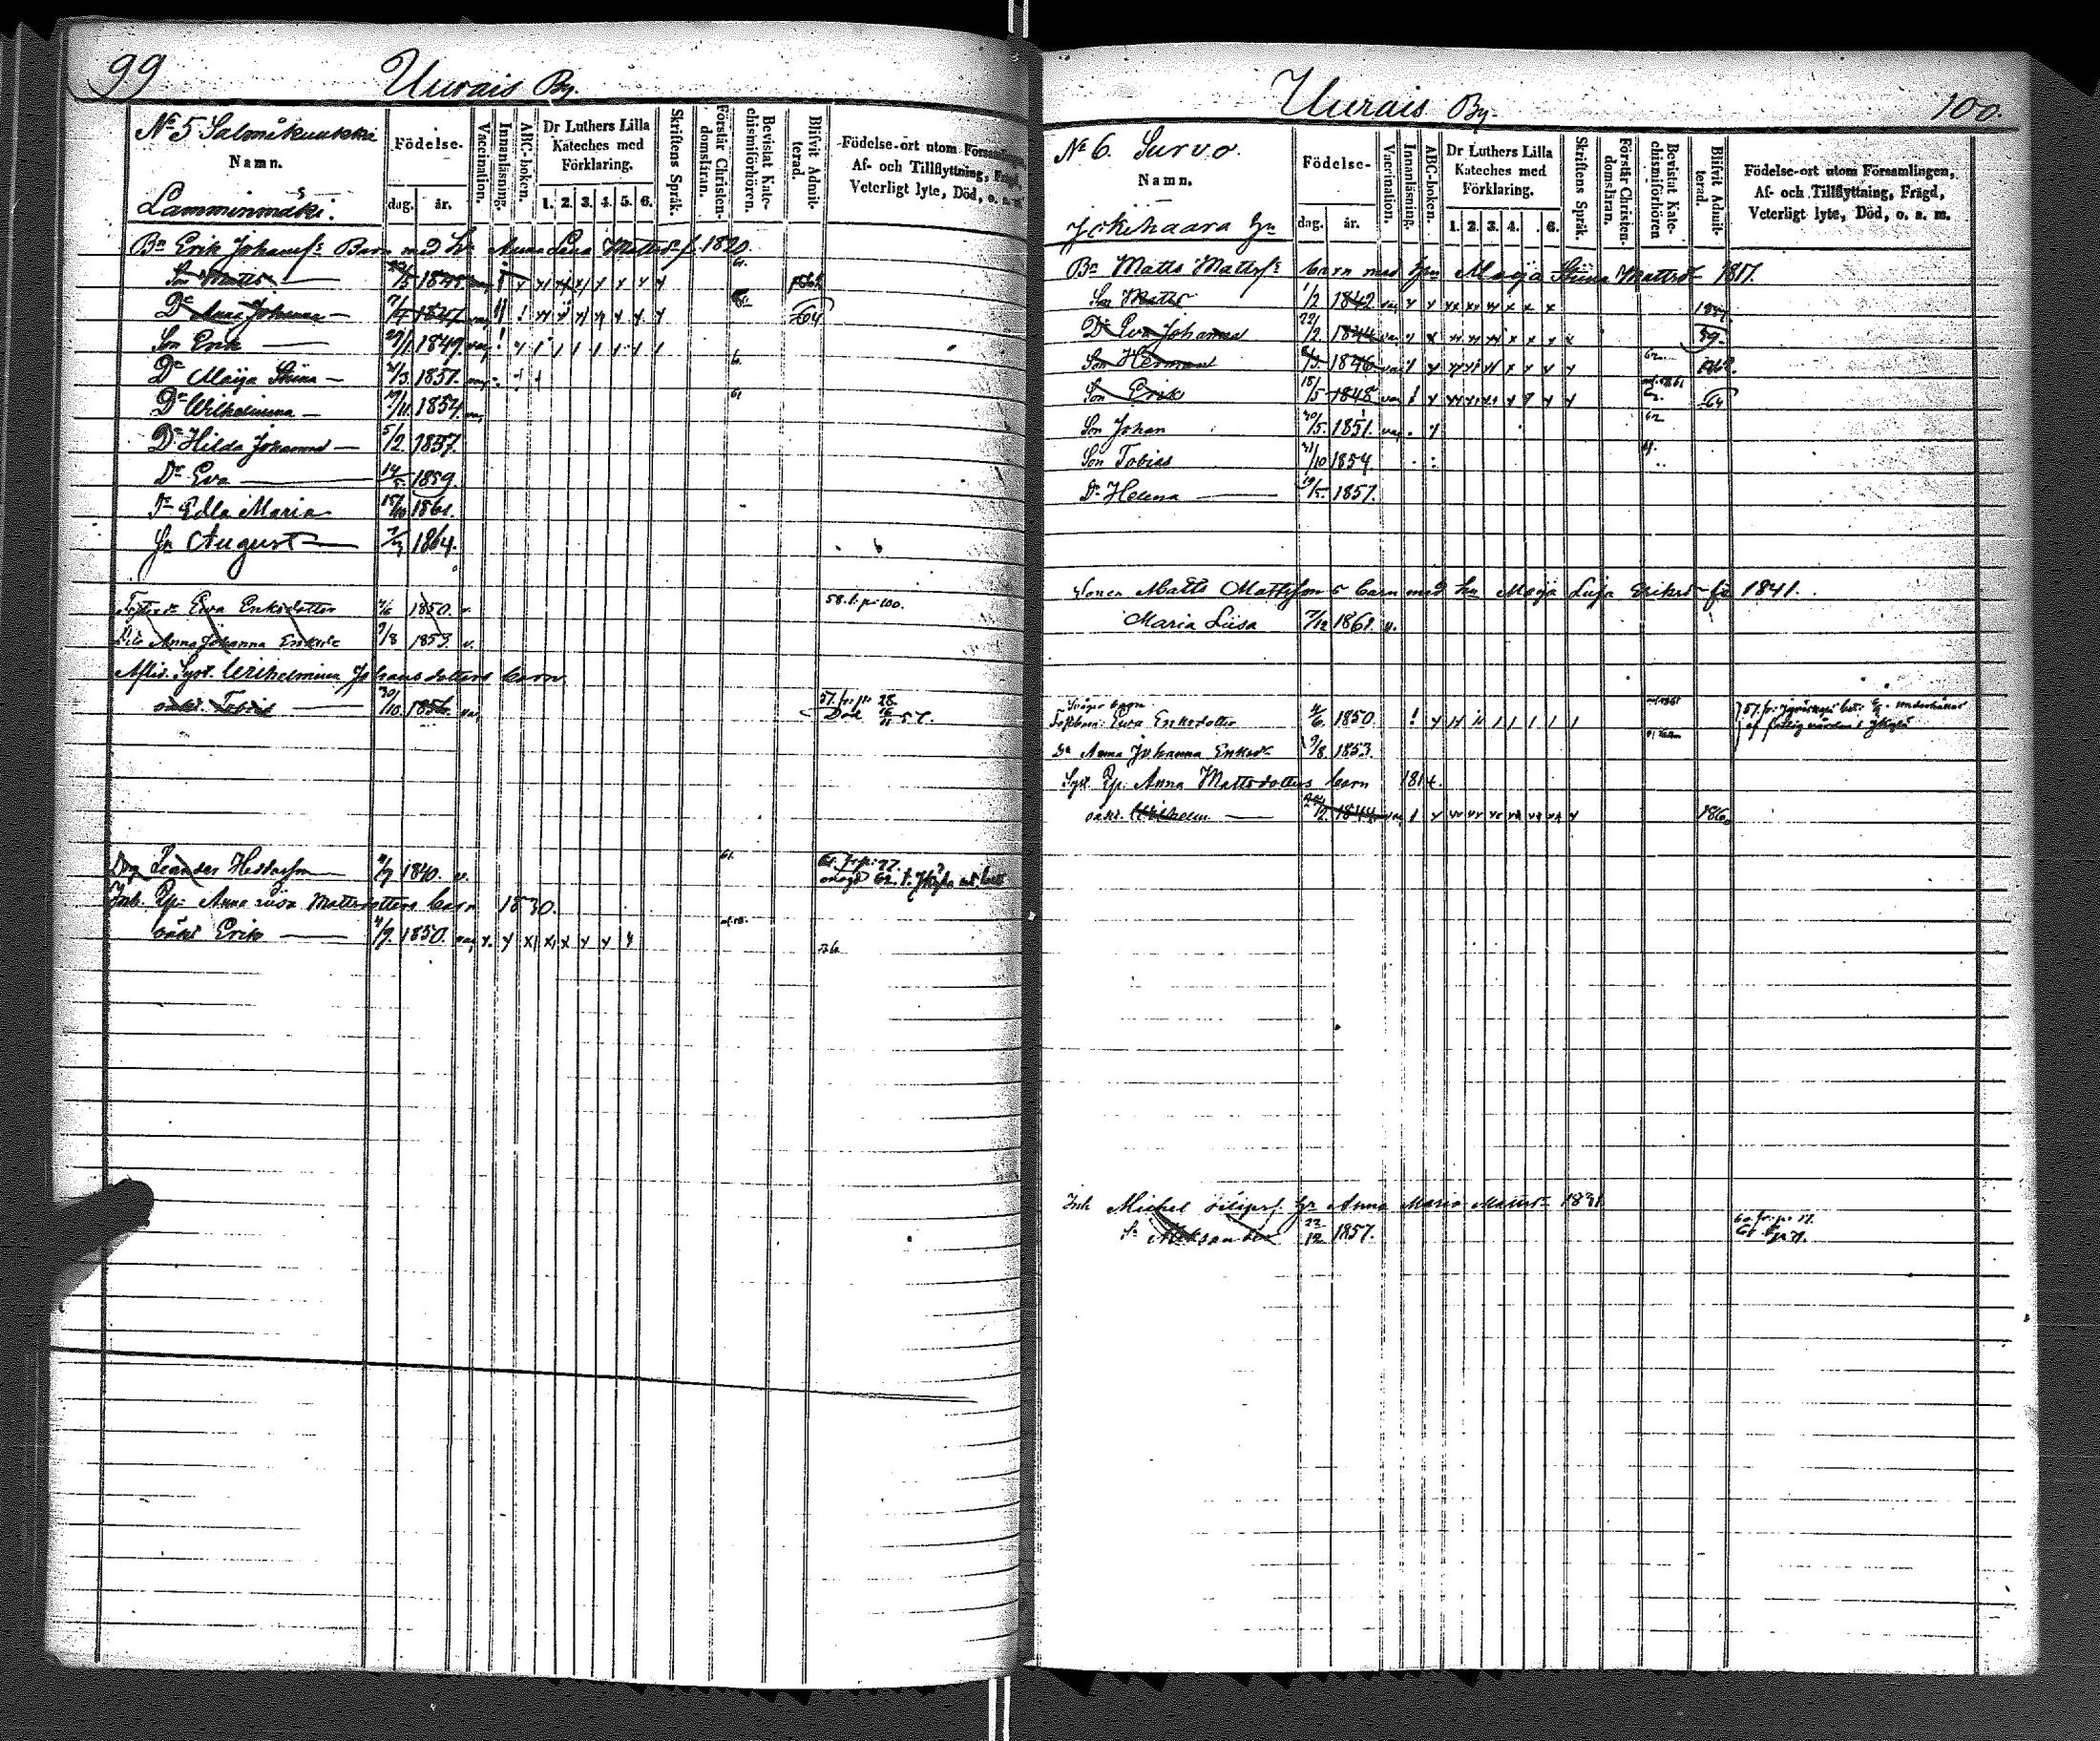 99
Uurais By.
No 5 Salmåkunkki
Namn.
Lamminmäki.
Födelse-
dag. år.
Vaccination.
Innanläsning.
ABC-boken.
Dr Luthers Lilla Kateches med Förklaring.
1. 2. 3. 4. 5. 6.
Skriftens Språk.
Förstår Christen-domsläran.
Bevistat Kate-chismiförhören.
Blivit Admit-terad.
Födelse-ort utom Församlingen,
Af- och Tillflyttning, Frägd,
Veterligt lyte, Död, o. a. m.
Bn Erik Johansf: Barn med Hu Anna Lena Mattsd: f. 1820.
Son Matts 1845
Dr Anna Johanna 7/4 1847 64
Son Erik 29/1 1849
Dr Maija Stina 1851
Dr Wilhelmina 1854
Dr Hilda Johanna 5/2 1857.
Dr Eva 14/5 1859
Dr Edla Maria 15/10 1861.
Sn August 1864.
Ewa Eriksdotter 4/6 1850. 58. t. p: 100.
Anna Johanna Eriksdr 9/8 1853 v.
Aflid. Syst. Wilhelmina Johansdotters barn
oäkt. Tobias 30/10 1856 57. fr. p: 28. Död 16/11 57.
Drg Leander 1840. v. 61.
Inh. Pp: Anna Liisa Mattsdotters barn 1830.
oäkt Erik 4/9. 1850.
Uurais By. 100.
No 6. Survo.
Namn.
Jokihaara
Födelse-
dag. år.
Vaccination.
Innanläsning.
ABC-boken.
Dr Luthers Lilla Kateches med Förklaring.
1. 2. 3. 4. . 6.
Skriftens Språk.
Förstår Christen-domsläran.
Bevistat Kate-chismiförhören
Blivit Admit-terad.
Födelse-ort utom Församlingen,
Af- och Tillflyttning, Frägd,
Veterligt lyte, Död, o. a. m.
Bn Matts Mattsf: barn med Hu Maija Stina Mattsdr 1817.
Son Matts 1/2 1842
Dr Eva Johanna 22/2 1844 59.
Son Herman 1846 62
Son Erik 18/5 1848 64
Son Johan 30/5. 1851. 62
Son Tobias 31/10 1854.
Dr Helena 19/5. 1857.
Sonen Matts Mattssons barn med hu Maija Lisa Eriksdr för 1841.
Maria Liisa 7/12 1861. v.
Ewa Eriksdotter 4/6. 1850.
Dr Anna Johanna Eriksdr 9/8 1853.
Syst. Pp. Anna Mattsdotters barn 1814.
oäkt. Wilhelm 1844
Inh Michel Filipsf. hu Anna Maria Mattsdr 1831
Sn Aleksander 23/12 1857. 60 fr. p: 57.